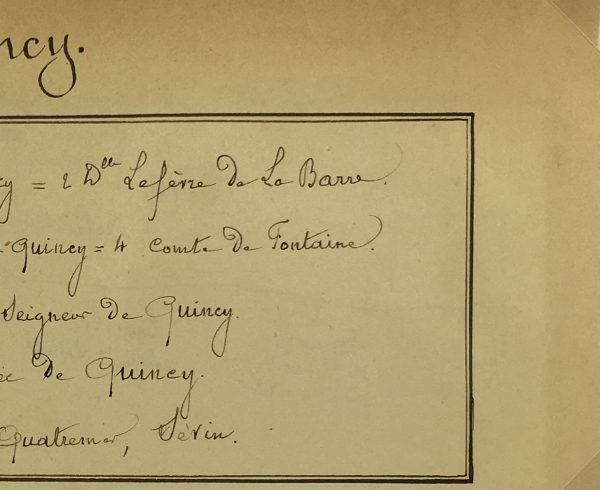 ncy.
cy = 2 Dlle Lefèvre De La Barre.
Quincy = 4 Comte De Fontaine.
Seigneur De Quincy.
ée De Quincy.
Quatremer, Sévin.